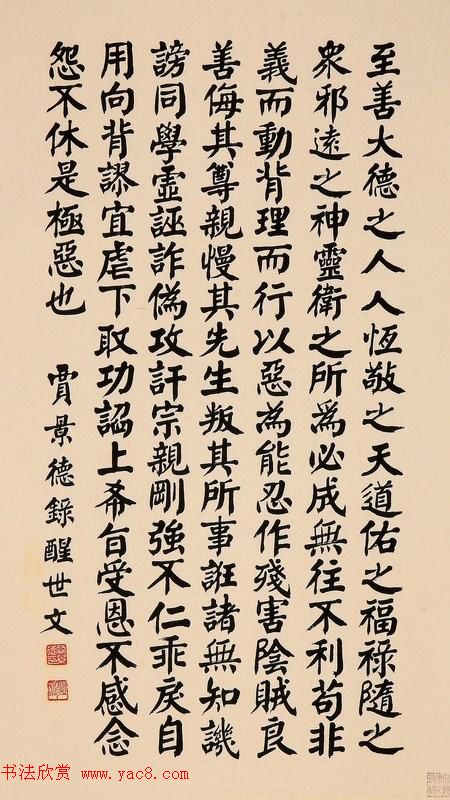 至善大德之人人恆敬之天道佑之福祿隨之
眾邪遠之神靈衛之所為必成無往不利苟非
義而動背理而行以惡為能忍作殘害陰賊良
善侮其尊親慢其先生叛其所事誑諸無知譏
謗同學虛誣詐偽攻訐宗親剛強不仁乖戾自
用向背謬宜虐下取功謟上希旨受恩不感念
怨不休是極惡也
賈景德錄醒世文
书法欣赏 www.yac8.com